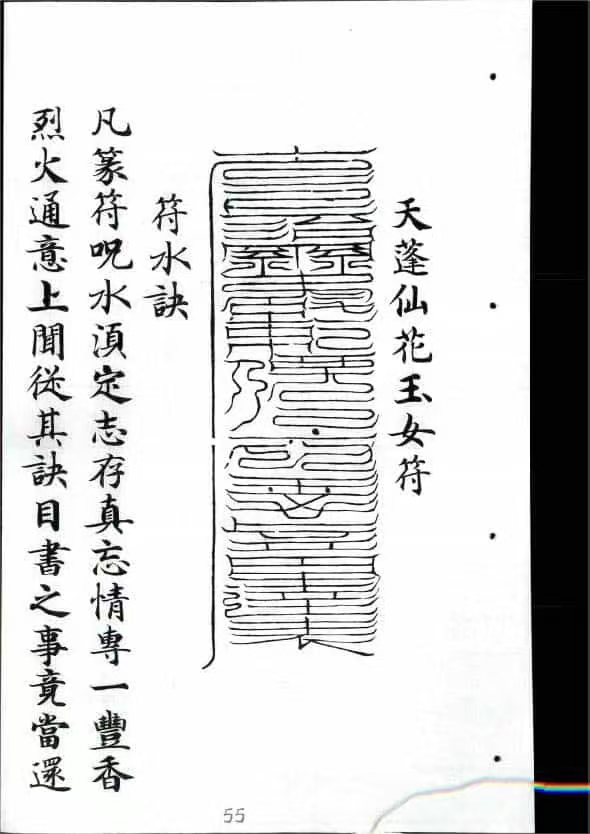 天蓬仙花玉女符
符水訣
凡篆符呪水湏定志存真忘情專一豐香
烈火通意上聞從其訣目書之事竟當還
55